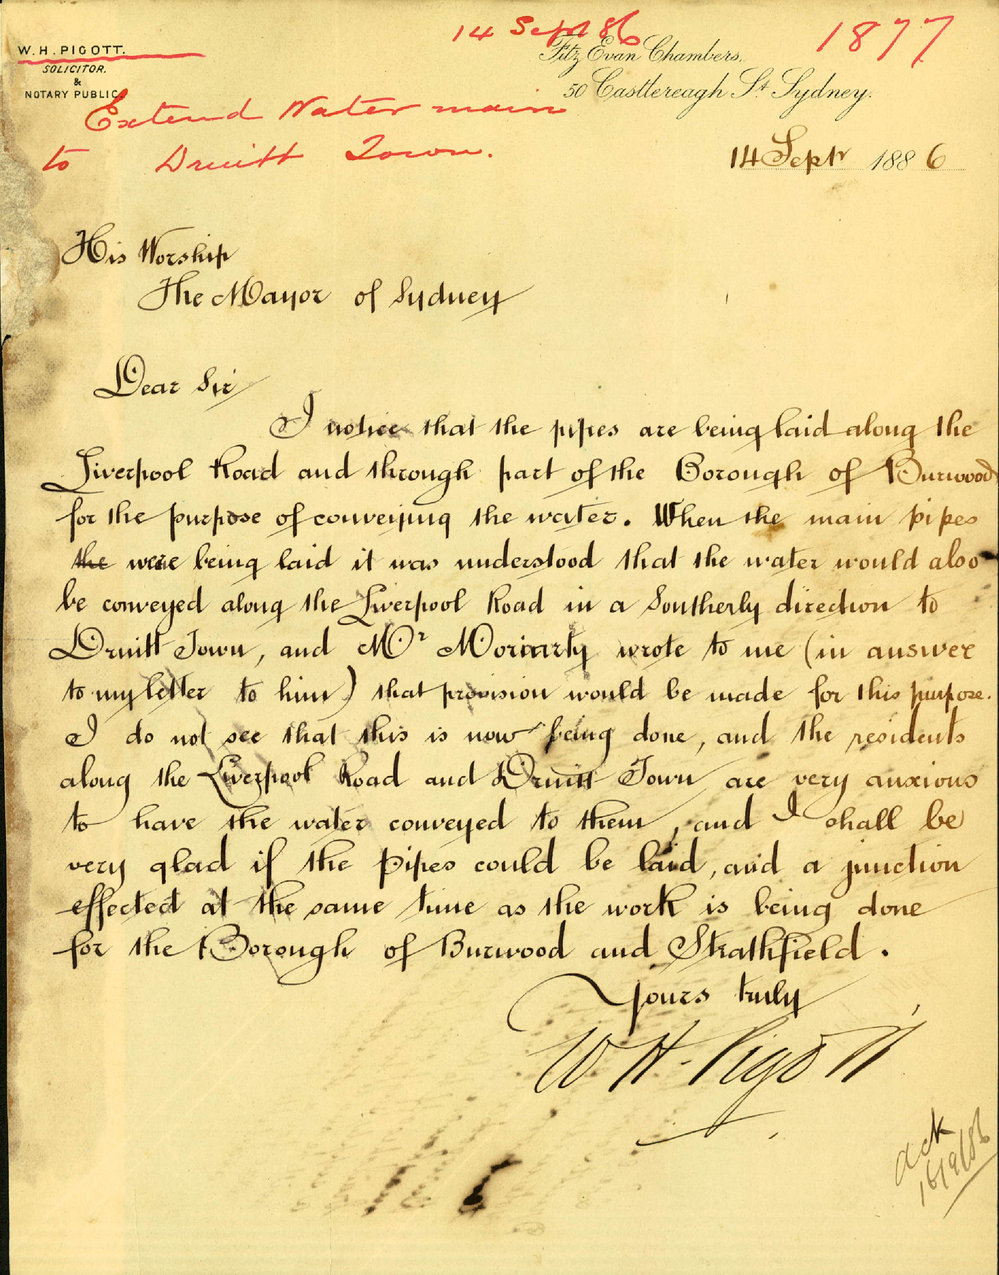 14 Sept 86
1877
W. H. PIGOTT.
SOLICITOR,
&
NOTARY PUBLIC.
Fitz Evan Chambers,
50 Castlereagh St Sydney.
Extend Water main
to Druitt Town.
14 Septr 1886
His Worship
The Mayor of Sydney
Dear Sir
I notice that the pipes are being laid along the
Liverpool Road and through part of the Borough of Burwood
for the purpose of conveying the water. When the main pipes
the were being laid it was understood that the water would also
be conveyed along the Liverpool Road in a Southerly direction to
Druitt Town, and Mr Moriarty wrote to me (in answer
to my letter to him) that provision would be made for this purpose.
I do not see that this is now being done, and the residents
along the Liverpool Road and Druitt Town are very anxious
to have the water conveyed to them, and I shall be
very glad if the Pipes could be laid, and a junction
effected at the same time as the work is being done
for the Borough of Burwood and Strathfield.
Yours truly
W H. Pigott
ack
16/9/86